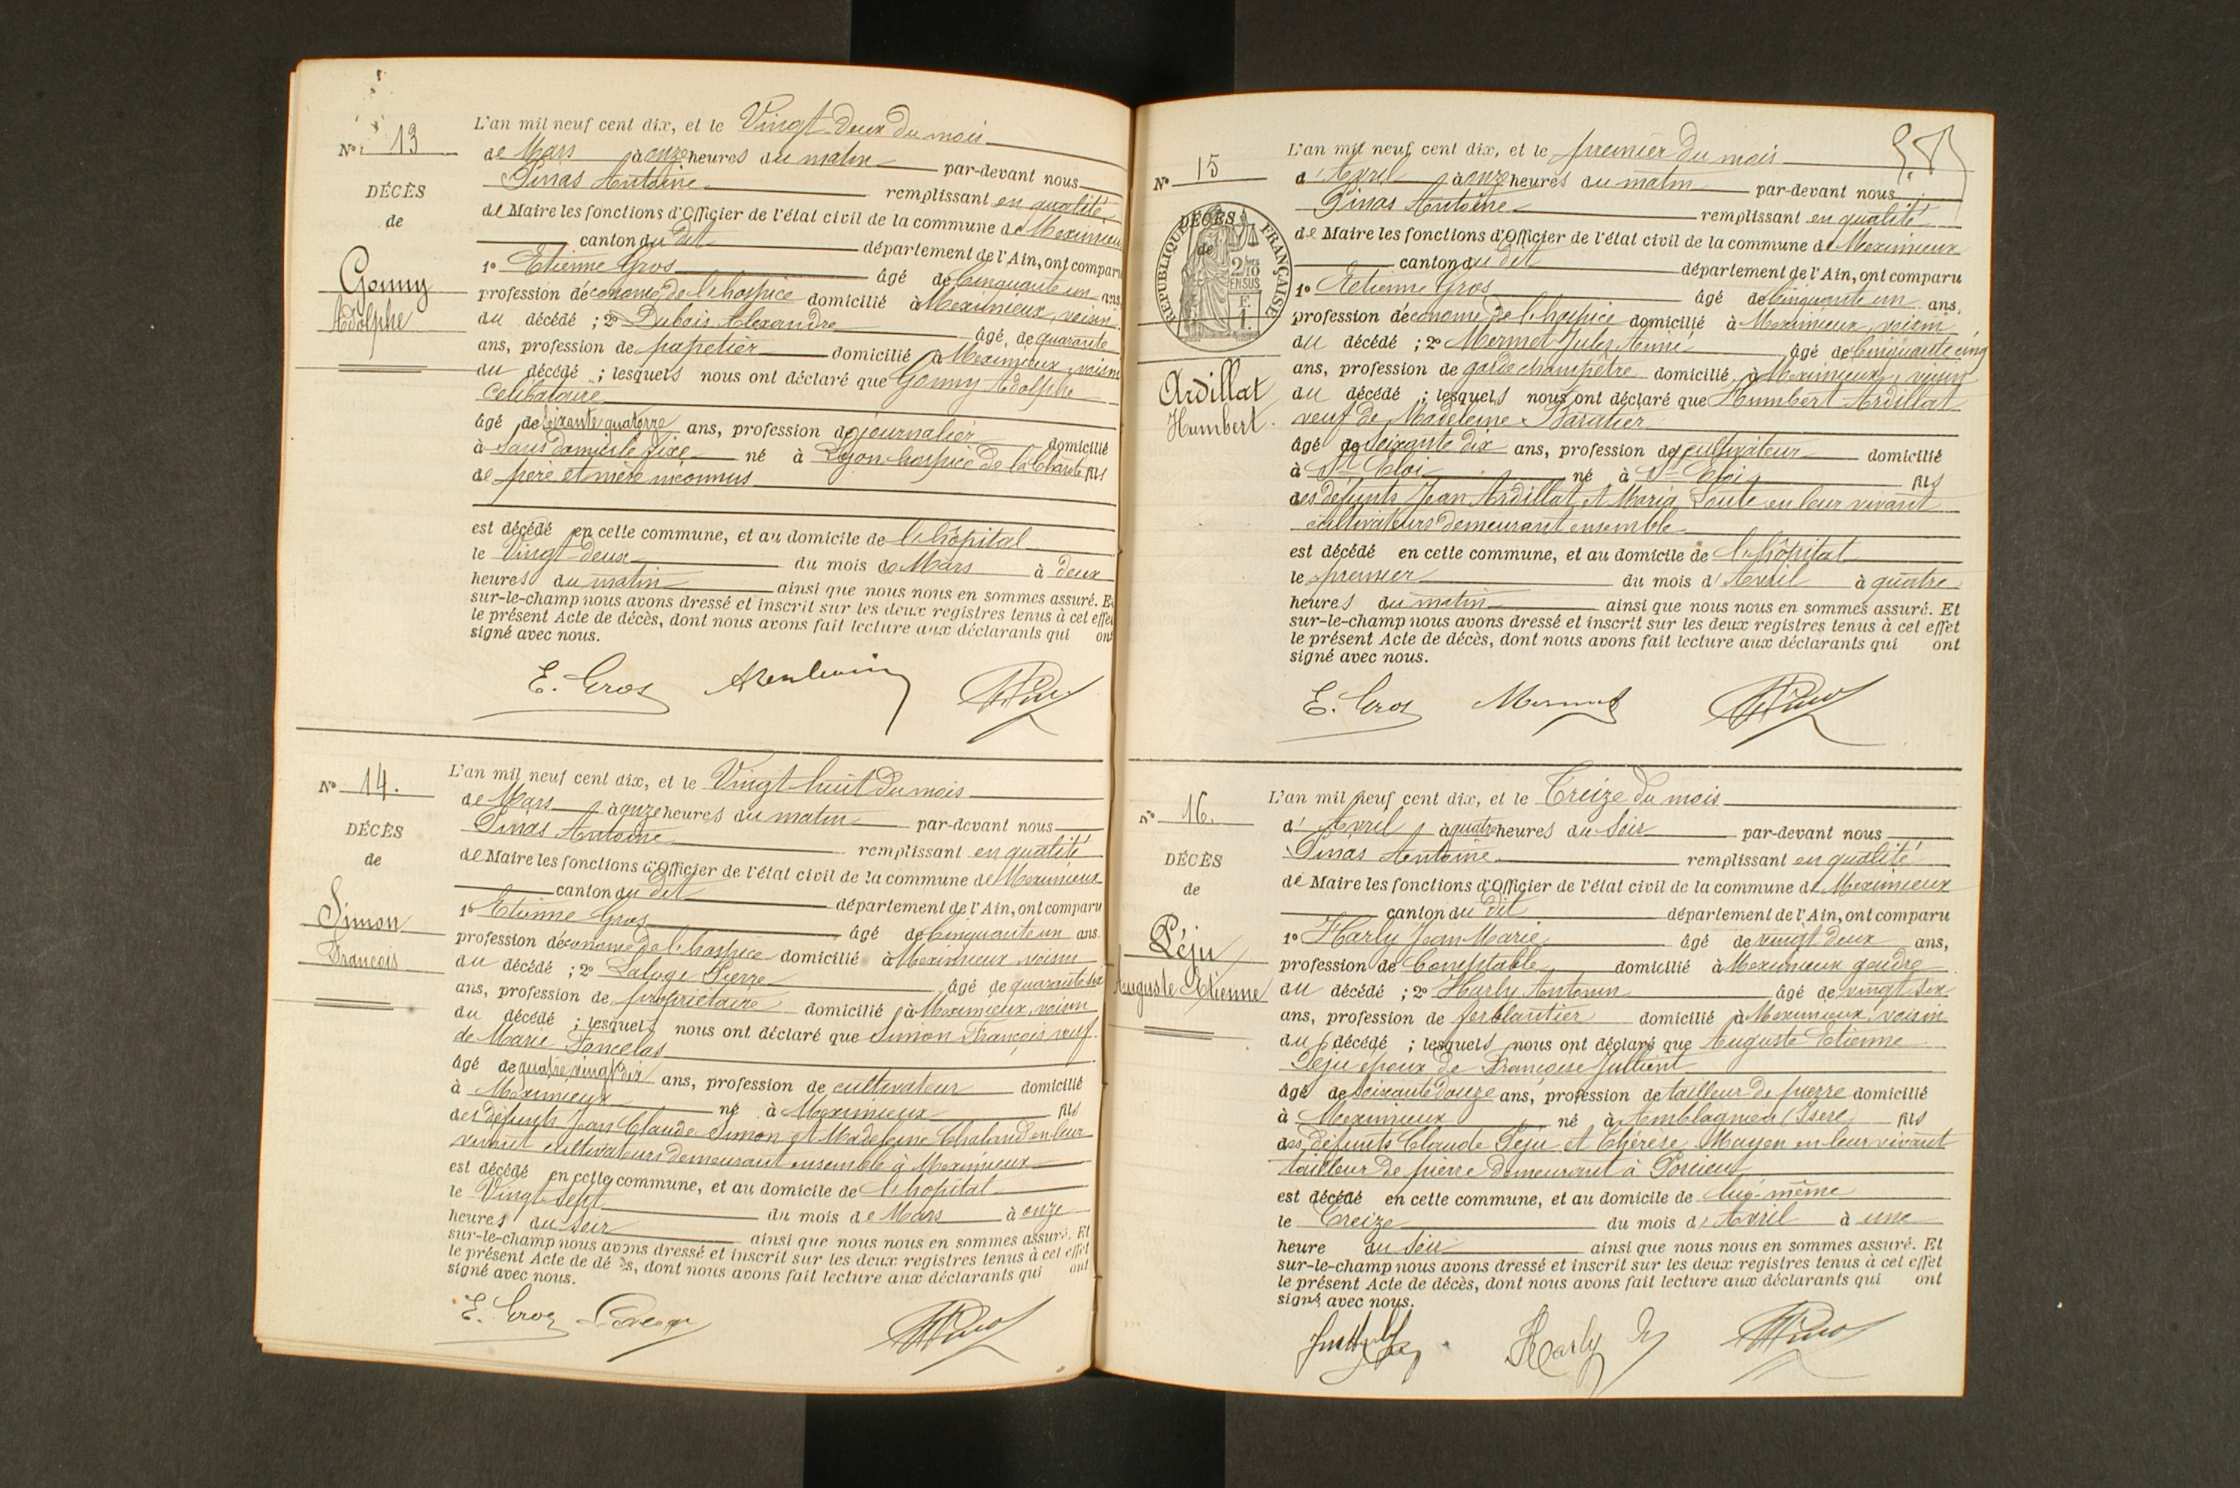 N° 13
DÉCÈS
de
Gonny
Adolphe
L'an mil neuf cent dix, et le Vingt deux du mois
de Mars à onze heures du matin par-devant nous
Pinas Antoine remplissant en qualité
de Maire les fonctions d'Officier de l'état civil de la commune de Meximieux
canton du dit département de l'Ain, ont comparu
1° Etienne Gros âgé de Cinquante un ans,
profession d'économe de l'hospice domicilié à Meximieux, voisin
du décédé ; 2° Dubois Alexandre âgé de quarante
ans, profession de papetier domicilié à Meximieux, voisin
du décédé ; lesquels nous ont déclaré que Gonny Adolphe
Célibataire
âgé de soixante quatorze ans, profession de journalier domicilié
à sans domicile fixe né à Lyon hospice de la Charité fils
de père et mère inconnus
est décédé en cette commune, et au domicile de l'hôpital
le Vingt deux du mois de Mars à deux
heures du matin ainsi que nous nous en sommes assuré. Et
sur-le-champ nous avons dressé et inscrit sur les deux registres tenus à cet effet
le présent Acte de décès, dont nous avons fait lecture aux déclarants qui ont
signé avec nous.
E. Gros
N° 14.
DÉCÈS
de
Simon
François
L'an mil neuf cent dix, et le Vingt huit du mois
de Mars à onze heures du matin par-devant nous
Pinas Antoine remplissant en qualité
de Maire les fonctions d'Officier de l'état civil de la commune de Meximieux
canton du dit département de l'Ain, ont comparu
1° Etienne Gros âgé de Cinquante un ans.
profession d'économe de l'hospice domicilié à Meximieux voisin
du décédé ; 2° Laloge Pierre âgé de quarante six
ans, profession de propriétaire domicilié à Meximieux, voisin
du décédé ; lesquels nous ont déclaré que Simon François veuf
de Marie Foncelas
âgé de quatre vingt dix ans, profession de cultivateur domicilié
à Meximieux né à Meximieux fils
des défunts Jean Claude Simon et Madeleine Chaland en leur
vivant cultivateurs demeurant ensemble à Meximieux
est décédé en cette commune, et au domicile de l'hopital
le Vingt sept du mois de Mars à onze
heures du soir ainsi que nous nous en sommes assuré. Et
sur-le-champ nous avons dressé et inscrit sur les deux registres tenus à cet effet
le présent Acte de décès, dont nous avons fait lecture aux déclarants qui ont
signé avec nous.
E. Gros
N° 15
DÉCÈS
de
RÉPUBLIQUE FRANÇAISE
2/10
EN SUS
F.
1.
Ardillat
Humbert.
L'an mil neuf cent dix, et le premier du mois
d'Avril à onze heures du matin par-devant nous
Pinas Antoine remplissant en qualité
de Maire les fonctions d'Officier de l'état civil de la commune de Meximieux
canton du dit département de l'Ain, ont comparu
1° Etienne Gros âgé de Cinquante un ans,
profession d'économe de l'hospice domicilié à Meximieux, voisin
du décédé ; 2° Mermet Jules Aimé âgé de Cinquante cinq
ans, profession de garde champêtre domicilié à Meximieux, voisin
du décédé ; lesquels nous ont déclaré que Humbert Ardillat
veuf de Madeleine Baratier
âgé de soixante dix ans, profession de cultivateur domicilié
à St Eloi né à St Eloi fils
des défunts Jean Ardillat et Maria Loute en leur vivant
cultivateurs demeurant ensemble
est décédé en cette commune, et au domicile de l'hôpital
le premier du mois d'Avril à quatre
heures du matin ainsi que nous nous en sommes assuré. Et
sur-le-champ nous avons dressé et inscrit sur les deux registres tenus à cet effet
le présent Acte de décès, dont nous avons fait lecture aux déclarants qui ont
signé avec nous.
E. Gros Mermet
N° 16.
DÉCÈS
de
Péju
Auguste Etienne
L'an mil neuf cent dix, et le Treize du mois
d'Avril à quatre heures du Soir par-devant nous
Pinas Antoine remplissant en qualité
de Maire les fonctions d'Officier de l'état civil de la commune de Meximieux
canton du dit département de l'Ain, ont comparu
1° Harly Jean Marie âgé de vingt deux ans,
profession de Comptable domicilié à Meximieux gendre
du décédé ; 2° Harly Antonin âgé de vingt six
ans, profession de ferblantier domicilié à Meximieux, voisin
du décédé ; lesquels nous ont déclaré que Auguste Etienne
Péju époux de Françoise Jullient
âgé de soixante douze ans, profession de tailleur de pierre domicilié
à Meximieux né à Amblagnieu (Isère fils
des défunts Claude Péju et Thérèse Moyen en leur vivant
tailleur de pierre demeurant à Porcieu
est décédé en cette commune, et au domicile de lui-même
le Treize du mois d'Avril à une
heure du Soir ainsi que nous nous en sommes assuré. Et
sur-le-champ nous avons dressé et inscrit sur les deux registres tenus à cet effet
le présent Acte de décès, dont nous avons fait lecture aux déclarants qui ont
signé avec nous.
Harly